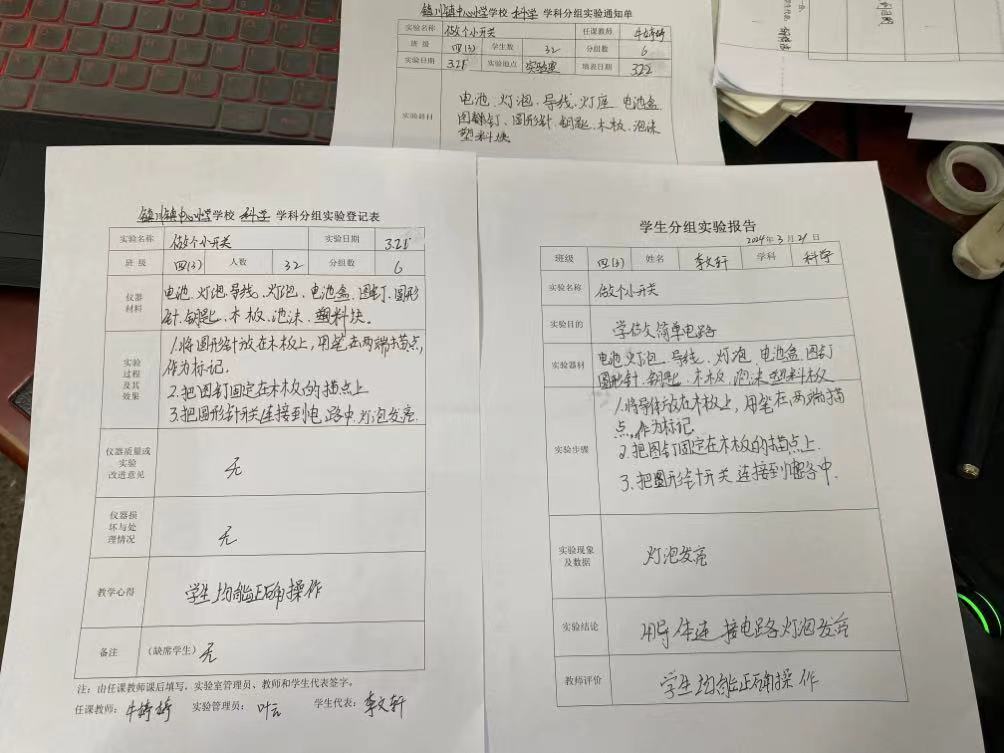 镇川镇中心小学学校 科学 学科分组实验通知单
实验名称 做个小开关 任课教师 牛婷婷
班级 四(3) 学生数 32 分组数 6
实验日期 3.21 实验地点 实验室 填表日期 322
实验器材 电池、灯泡、导线、灯座、电池盒
图钉、圆形针、钥匙、木板、泡沫
塑料块
镇川镇中心小学学校 科学 学科分组实验登记表
实验名称 做个小开关 实验日期 3.21
班级 四(3) 人数 32 分组数 6
仪器材料 电池、灯泡、导线、灯泡、电池盒、图钉、圆形
针、钥匙、木板、泡沫、塑料块。
实验过程及其效果 1.将圆形针放在木板上,用笔在两端描点,
作为标记.
2.把图钉固定在木板的描点上
3.把圆形针开关连接到电路中.灯泡发亮.
仪器质量或实验改进意见 无
仪器损坏与处理情况 无
教学心得 学生均能正确操作
备注 (缺席学生) 无
注:由任课教师课后填写,实验室管理员、教师和学生代表签字。
任课教师: 牛婷婷 实验管理员: 叶云 学生代表: 李文轩
学生分组实验报告
2024年3月21日
班级 四(3) 姓名 李文轩 学科 科学
实验名称 做个小开关
实验目的 学做简单电路
实验器材 电池、灯泡、导线、灯泡、电池盒、图钉
圆形针、钥匙、木板、泡沫塑料板
实验步骤 1.将导体放在木板上,用笔在两端描
点,作为标记.
2.把图钉固定在木板的描点上.
3.把圆形针开关连接到电路中.
实验现象及数据 灯泡发亮
实验结论 用导体连接电路灯泡发亮
教师评价 学生均能正确操作